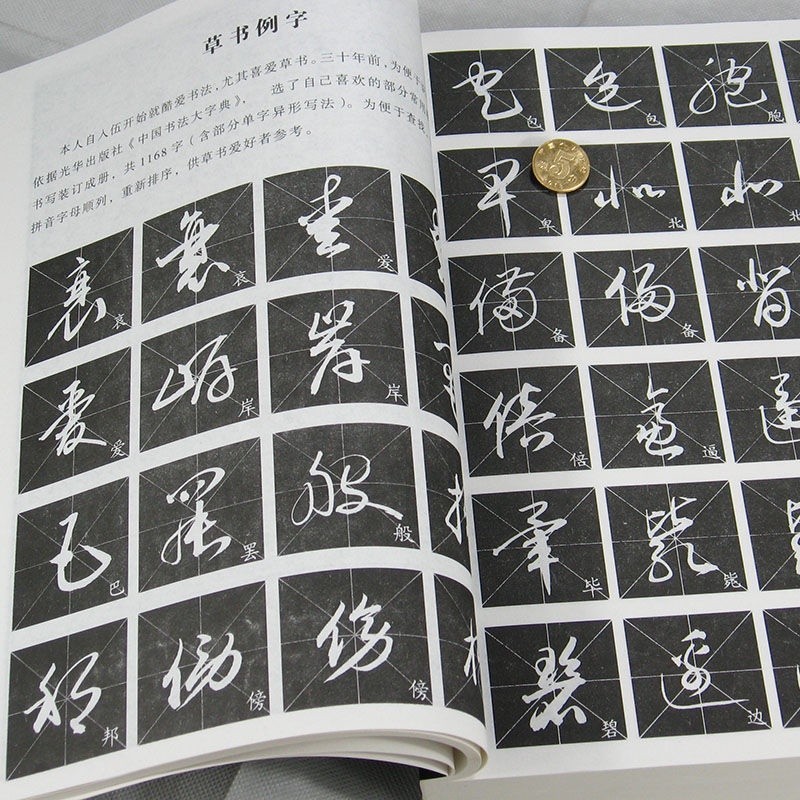 草书例字
本人自入伍开始就酷爱书法，尤其喜爱草书。三十年前，为便于
依据光华出版社《中国书法大字典》， 选了自己喜欢的部分常用
书写装订成册，共1168字（含部分单字异形写法）。为便于查找
拼音字母顺列，重新排序，供草书爱好者参考。
哀 哀 爱
爱 岸 岸
巴 罢 般
邦 傍 傍
包 包 胞
5
卑 北 北
备 备
倍 逼
毕 毙
碧 边